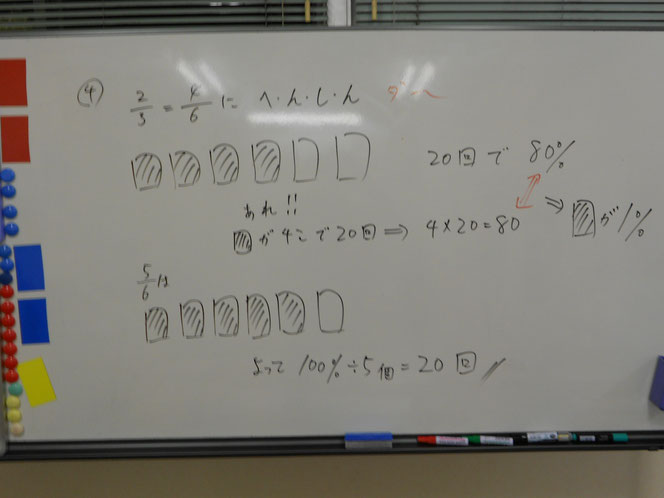 ④ 2/3 = 4/6 に へ・ん・し・ん
20回で 80%
あれ!!
が4こで20回 ⇒ 4×20=80 ⇒ が1%
5/6は
よって 100%÷5個=20回